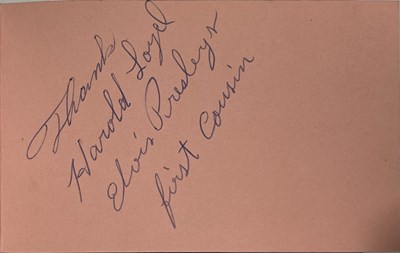 Thank
Harold Loyd
Elvis Presleys
first Cousin